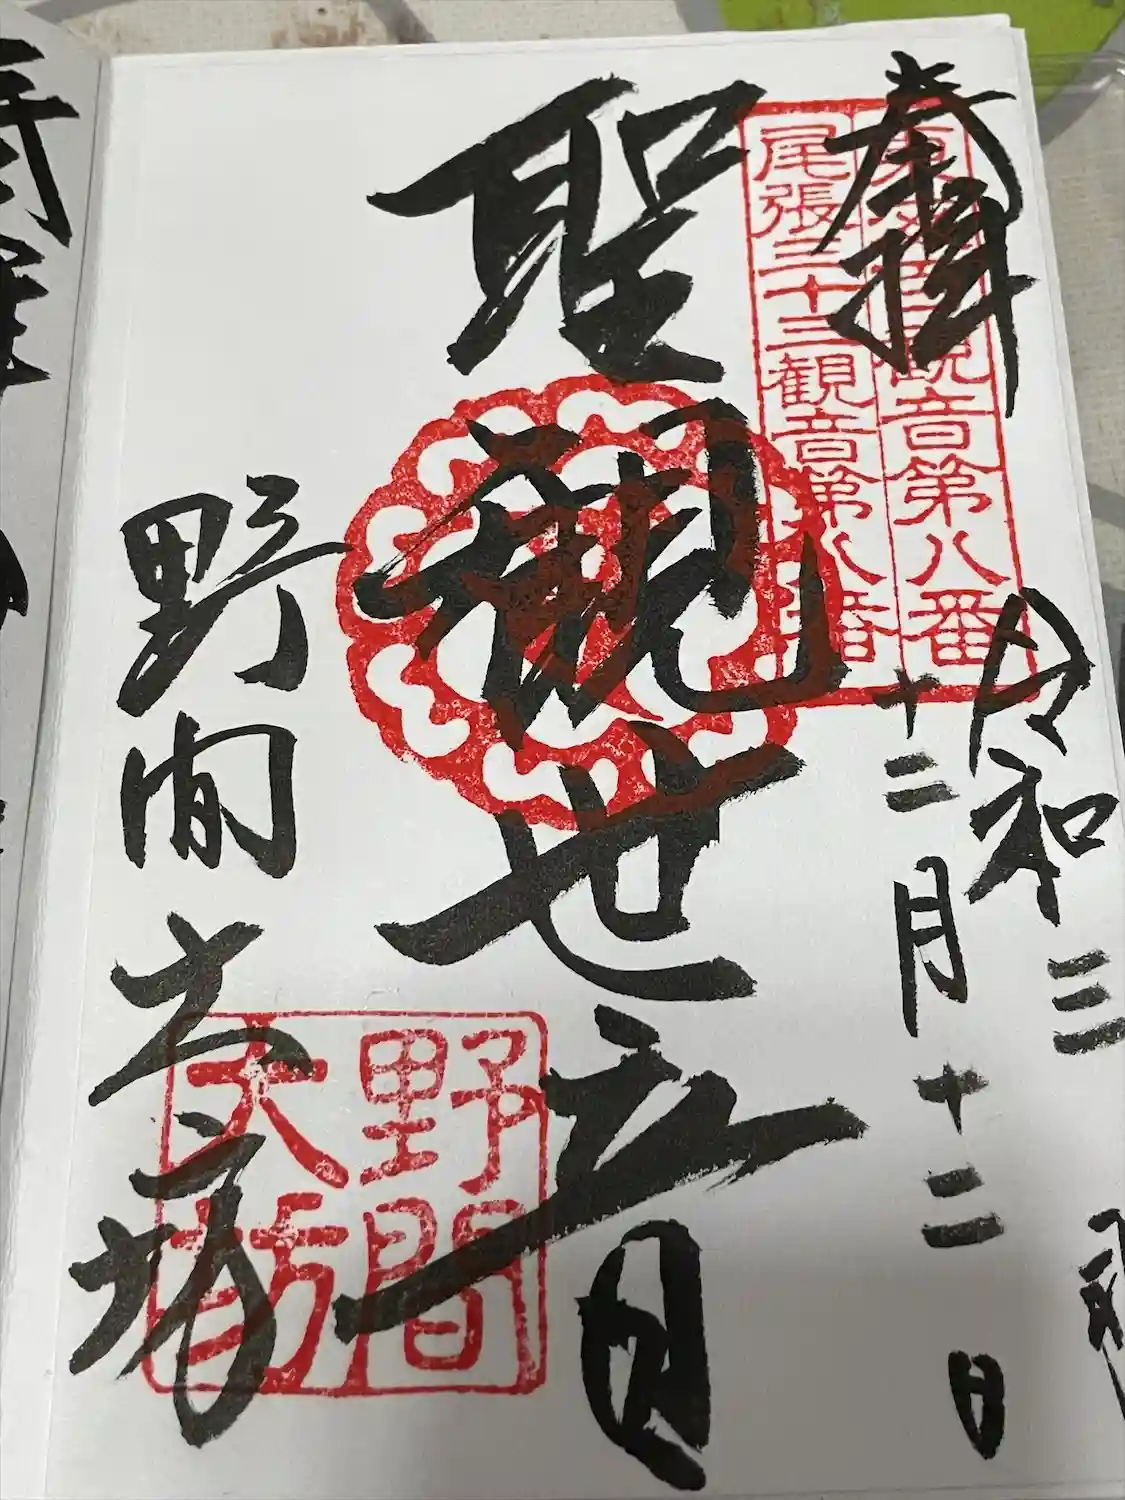 奉拝
東海百観音第八番
尾張三十三観音第八番
令和三
十二月十二日
聖観世音
野間大坊
野間
大坊